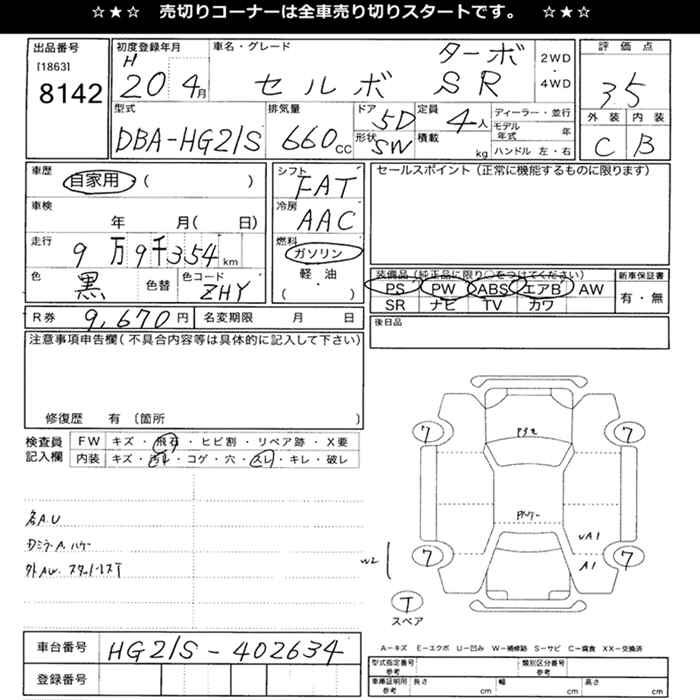 ☆★☆ 売切りコーナーは全車売り切りスタートです。 ☆★☆
出品番号
[1863]
8142
初度登録年月
H
20 4月
車名・グレード
ターボ
セルボ SR
2WD
・
4WD
評価点
35
外装 内装
C B
型式
DBA-HG21S
排気量
660cc
ドア 5D
形状 SW
定員 4人
積載 kg
ディーラー・並行
モデル年式 年
ハンドル 左・右
車歴
自家用・( )
車検
年 月( 日)
走行
9万9千354km
色
黒
色替
色コード
ZHY
シフト
FAT
冷房
AAC
燃料
ガソリン
軽・油
( )
セールスポイント(正常に機能するものに限ります)
装備品(純正品に限り○をつけてください)
PS PW ABS エアB AW
SR ナビ TV カワ
新車保証書
有・無
後日品
R券 9,670円
名変期限 月 日
注意事項申告欄(不具合内容等は具体的に記入して下さい)
修復歴 有 〔箇所 〕
検査員
記入欄
FW キズ・飛石・ヒビ割・リペア跡・X要
内装 キズ・汚れ・コゲ・穴・スレ・キレ・破レ
各A.U
外AW.
7 7
7 7
W2
UA1
A1
T
スペア
A-キズ E-エクボ U-凹み W-補修跡 S-サビ C-腐食 XX-交換済
車台番号 HG21S-402634
登録番号
型式指定番号
参考
類別区分番号
参考
車庫証明用
参考
長さ cm
幅 cm
高さ cm